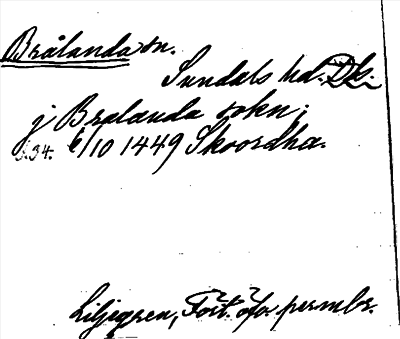 Brålanda sn.
Sundals hd. Ds.
j Bralanda sokn;
s. 34. 6/10 1449 Skoordha.
Liljegren, Fört. öfv. permbr.